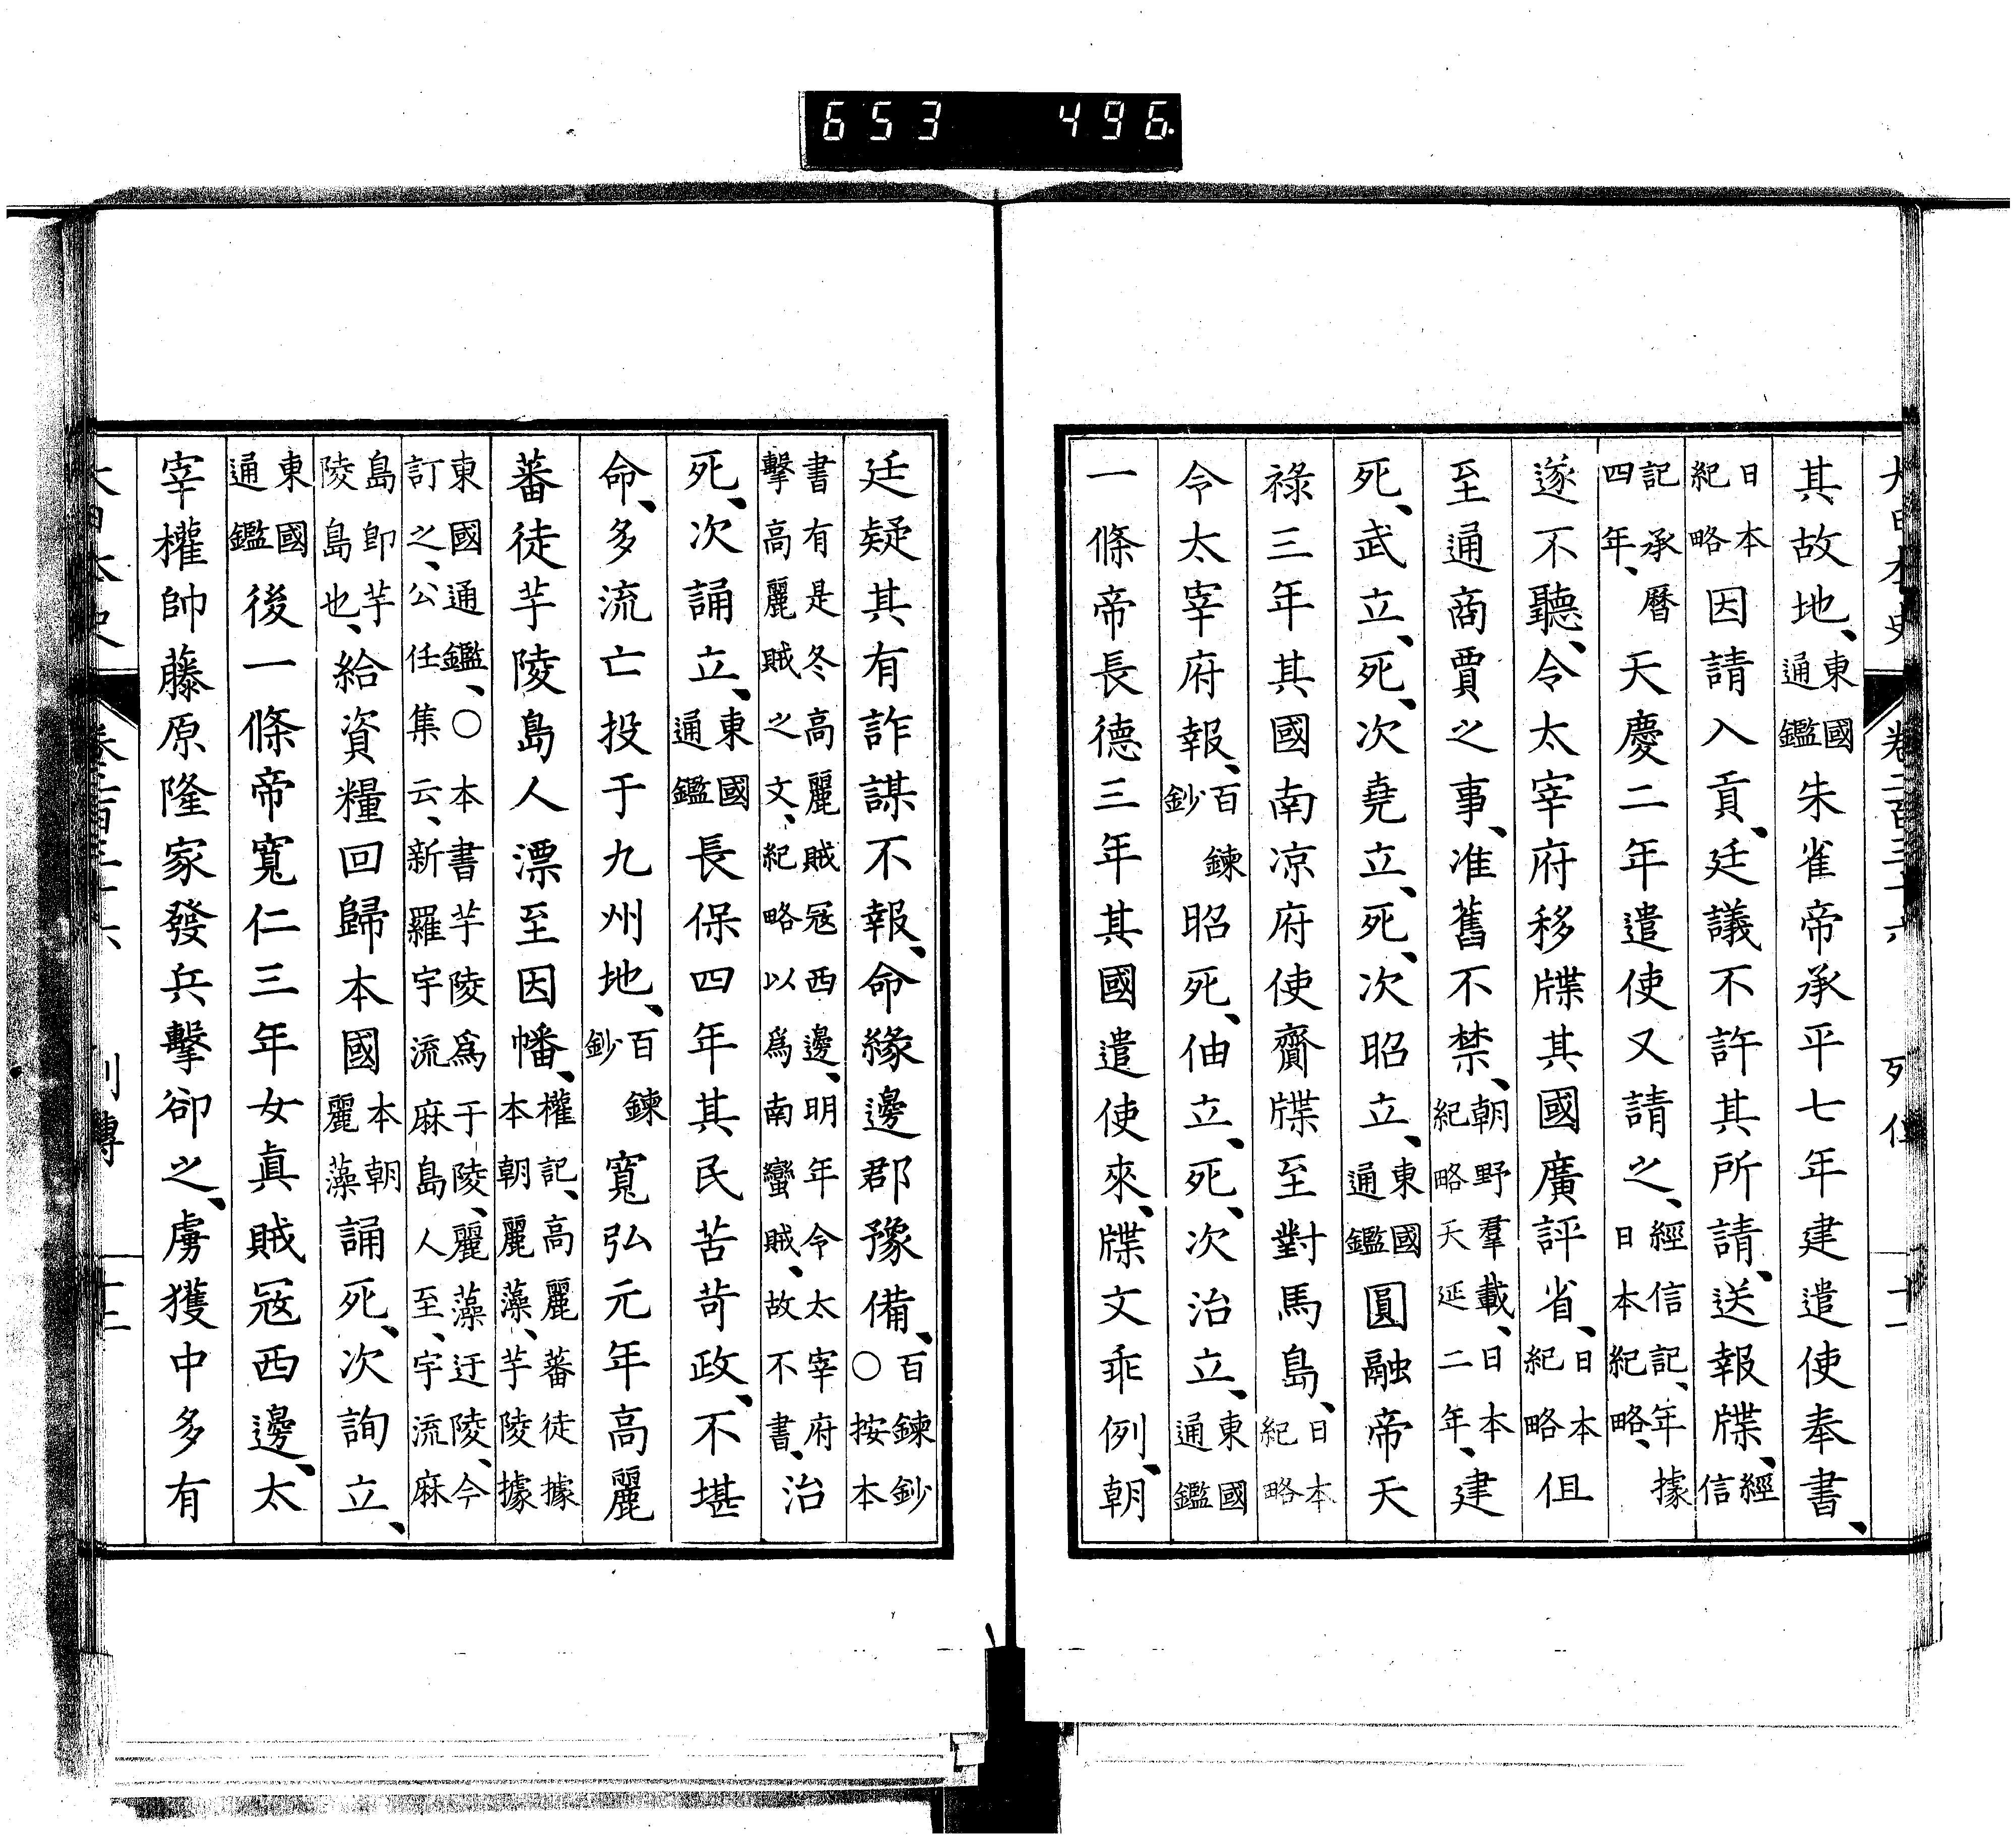 653 496
大日本史 卷二百三十六 列傳 十一
其故地、東國通鑑朱雀帝承平七年建遣使奉書、
日本紀略因請入貢、廷議不許其所請、送報牒、經信
記承曆四年、天慶二年遣使又請之、經信記、年據日本紀略、
遂不聽、令太宰府移牒其國廣評省、日本紀略但
至通商賈之事、准舊不禁、朝野羣載、日本紀略天延二年、建
死、武立、死、次堯立、死、次昭立、東國通鑑圓融帝天
祿三年其國南凉府使齎牒至對馬島、日本紀略
令太宰府報、百鍊鈔昭死、伷立、死、次治立、東國通鑑
一條帝長德三年其國遣使來、牒文乖例、朝
廷疑其有詐謀不報、命緣邊郡豫備、百鍊鈔○按本
書有是冬高麗賊寇西邊、明年令太宰府擊高麗賊之文、紀略以爲南蠻賊、故不書、治
死、次誦立、東國通鑑長保四年其民苦苛政、不堪
命、多流亡投于九州地、百鍊鈔寬弘元年高麗
蕃徒芋陵島人漂至因幡、權記、高麗蕃徒據本朝麗藻、芋陵據
東國通鑑、○本書芋陵爲于陵、麗藻迂陵、今訂之、公任集云、新羅宇流麻島人至、宇流麻
島卽芋陵島也、給資糧回歸本國本朝麗藻誦死、次詢立、
東國通鑑後一條帝寬仁三年女眞賊寇西邊、太
宰權帥藤原隆家發兵擊卻之、虜獲中多有
大日本史 卷二百三十六 列傳 十二